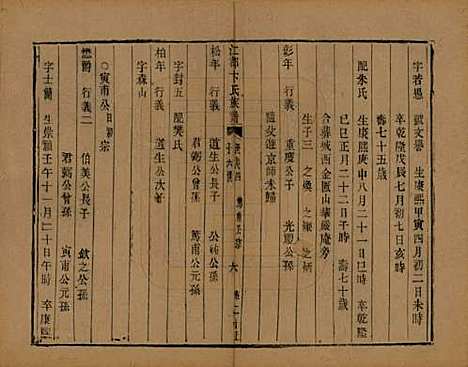 字若愚 號文譽 生康熙甲寅四月初二日未時
卒乾隆戊辰七月初七日亥時
壽七十五歲
配朱氏 生康熙庚申八月二十一日巳時 卒乾隆
己巳正月二十二日子時 壽七十歲
合葬城西金匱山華嚴庵旁
生子三 之
彰年 行義 重慶公子 光 公孫
隨父遊京師未歸
江都卞氏族譜
松年 行義 道生公長子 公孫
君弼公曾孫 篤甫公元孫
字封五
配樊氏
柏年 行義 道生公次子
字森山
○寅甫公日新宗
懋爵 行義二 伯美公長子 歛之公孫
君弼公曾孫 寅甫公元孫
字士 生崇禎壬午十一月二十日午時 卒康熙